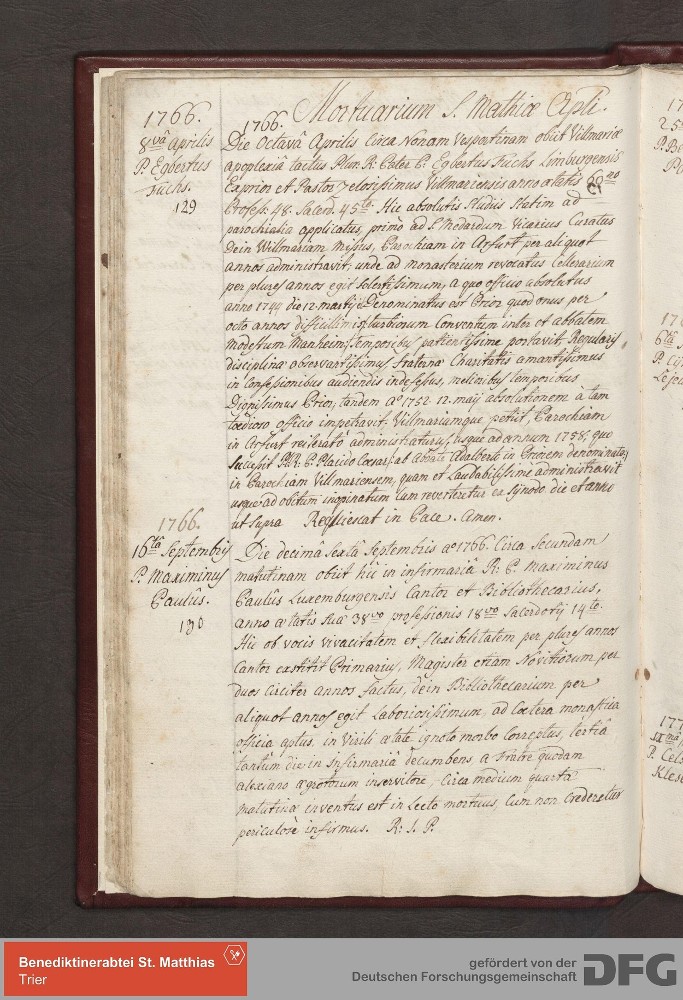 Mortuarium S. Mathiæ Apli.
1766.
8vâ Aprilis
P. Egbertus
Fuchs.
129
1766.
Die Octavâ Aprilis Circa Nonam Vespertinam obiit Villmariæ
apoplexiâ tactus Plur. R: Pater P: Egbertus Fuchs Limburgensis
Exprior et Pastor zelosissimus Villmariensis anno ætatis
Profess: 48. Sacerd. 45to. Hic absolutis studiis statim ad
parochialia applicatus, primò ad S. Medardum Vicarius Curatus
Dein Willmariam missus, Parochiam in Arfurt per aliquot
annos administravit: unde ad monasterium revocatus Cellerarium
per plures annos egit solertissimum, a quo officio absolutus
anno 1744 die 12 martij Denominatus est Prior quod onus per
octo annos difficillimis turbinum Conventum inter et abbatem
Modestum Manheim temporibus patientissime portavit. Regularis
disciplinæ observantissimus fraternæ Charitatis amantissimus
in Confessionibus audiendis indefessus, melioribus temporibus
Dignissimus Prior, tandem ao 1752 12. maij absolutionem à tam
tædioso officio impetravit: Villmariamque petiit, Parochiam
in Arfurt reiteratò administraturus, usque ad annum 1758, quo
successit P. R: P. Placido Cæsar, ab Abbate Adalberto in Priorem denominato,
in Parochiam Villmariensem, quam et Laudabilissimè administravit
usque ad obitum inopinatum cum reverteretur ex Synodo die et anno
ut supra Requiescat in Pace. Amen.
1766.
16tâ Septembris
P. Maximinus
Paulûs.
130
Die decimâ Sextâ Septembris ao 1766. Circa Secundam
matutinam obiit hic in infirmariâ R: P. Maximinus
Paulûs Luxemburgensis Cantor et Bibliothecarius,
anno ætatis suæ 38vo professionis 18vo Sacerdotij 14to.
Hic ob vocis vivacitatem et flexibilitatem per plures annos
Cantor exstitit Primarius, Magister etiam Novitiorum per
duos circiter annos factus, dein Bibliothecarium per
aliquot annos egit Laboriosissimum, ad Cœtera monastica
officia aptus, in Virili ætate ignoto morbo Correptus, tertiâ
tantùm die in Infirmariâ decumbens a Fratre quodam
alexiano ægrotorum inservitore, Circa medium quartæ
matutinæ inventus est in Lecto mortuus, Cum non crederetur
periculosè infirmus. R: I. P.
Benediktinerabtei St. Matthias
Trier
gefördert von der
Deutschen Forschungsgemeinschaft
DFG